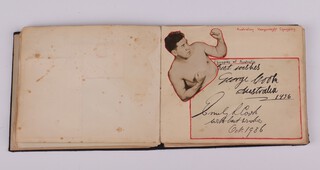 Best wishes
George Cook
Australia
1936
Emily R Cook
with best wishes
Oct. 1936